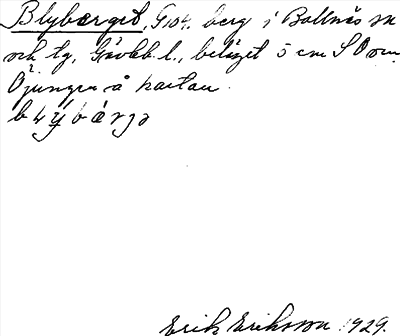 Blyberget, G104. berg i Bollnäs sn
och tg, Gävleb. l., beläget 5 cm SO om
Öjungen å kartan.
blybärjə
Erik Eriksson 1929.